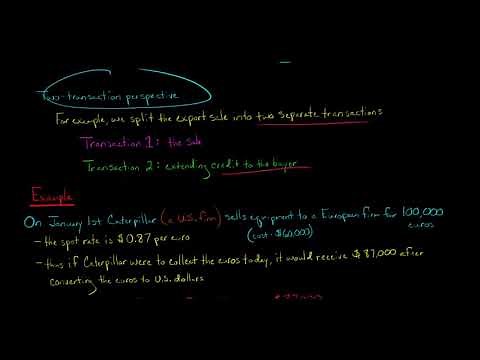 Two-transaction perspective
For example, we split the export sale into two separate transactions
Transaction 1: the sale
Transaction 2: extending credit to the buyer
Example
On January 1st Caterpillar (a U.S. firm) sells equipment to a European firm for 100,000 euros
(cost = $60,000)
- the spot rate is $0.87 per euro
- thus if Caterpillar were to collect the euros today, it would receive $87,000 after
converting the euros to U.S. dollars